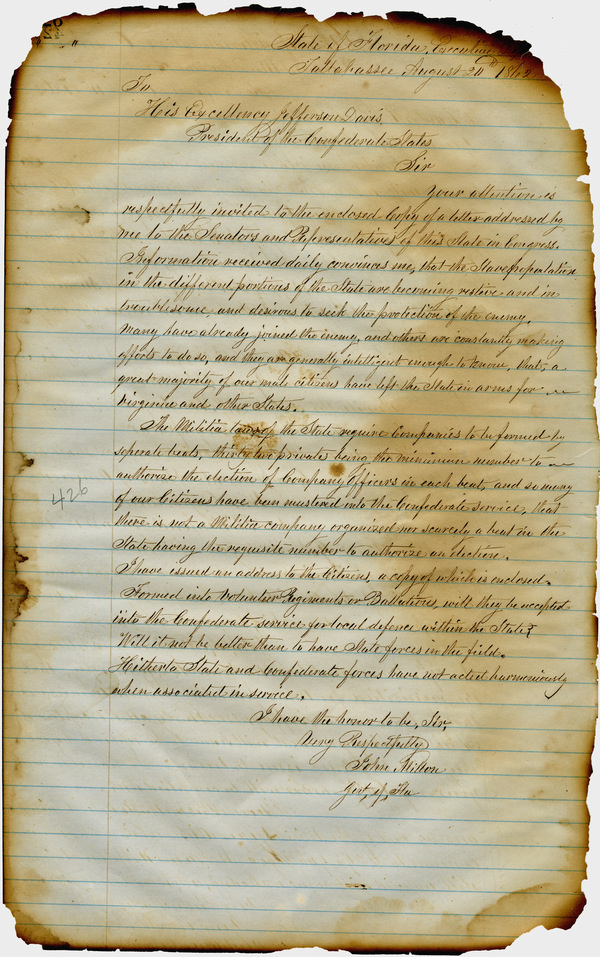 State of Florida, Executive
Tallahassee August 20th 1862
To
His Excellency Jefferson Davis
President of the Confederate States
Sir
Your attention is
respectfully invited to the enclosed Copy of a letter addressed by
me to the Senators and Representatives of this State in Congress.
Information received daily convinces me, that the Slave population
in the different portions of the State are becoming restive and in
troublesome, and desirous to seek the protection of the enemy.
Many have already joined the enemy, and others are constantly making
efforts to do so, and they are generally intelligent enough to know, that, a
great majority of our male citizens have left the State in arms for
Virginia and other States.
The Militia laws of the State require Companies to be formed by
seperate beats, thirty two privates being the minimum number to
authorize the election of Company Officers in each beat, and so many
of our Citizens have been mustered into the Confederate service, that
there is not a Militia company organized nor scarcely a beat in the
State having the requisite number to authorize an election.
I have issued an address to the Citizens, a copy of which is enclosed.
Formed into Volunteer Regiments or Battalions, will they be accepted
into the Confederate service for local defence within the State?
Will it not be better than to have State forces in the field.
Hitherto State and Confederate forces have not acted harmoniously
when associated in service.
I have the honor to be, Sir,
Very Respectfully
John Milton
Govr. of Fla
426